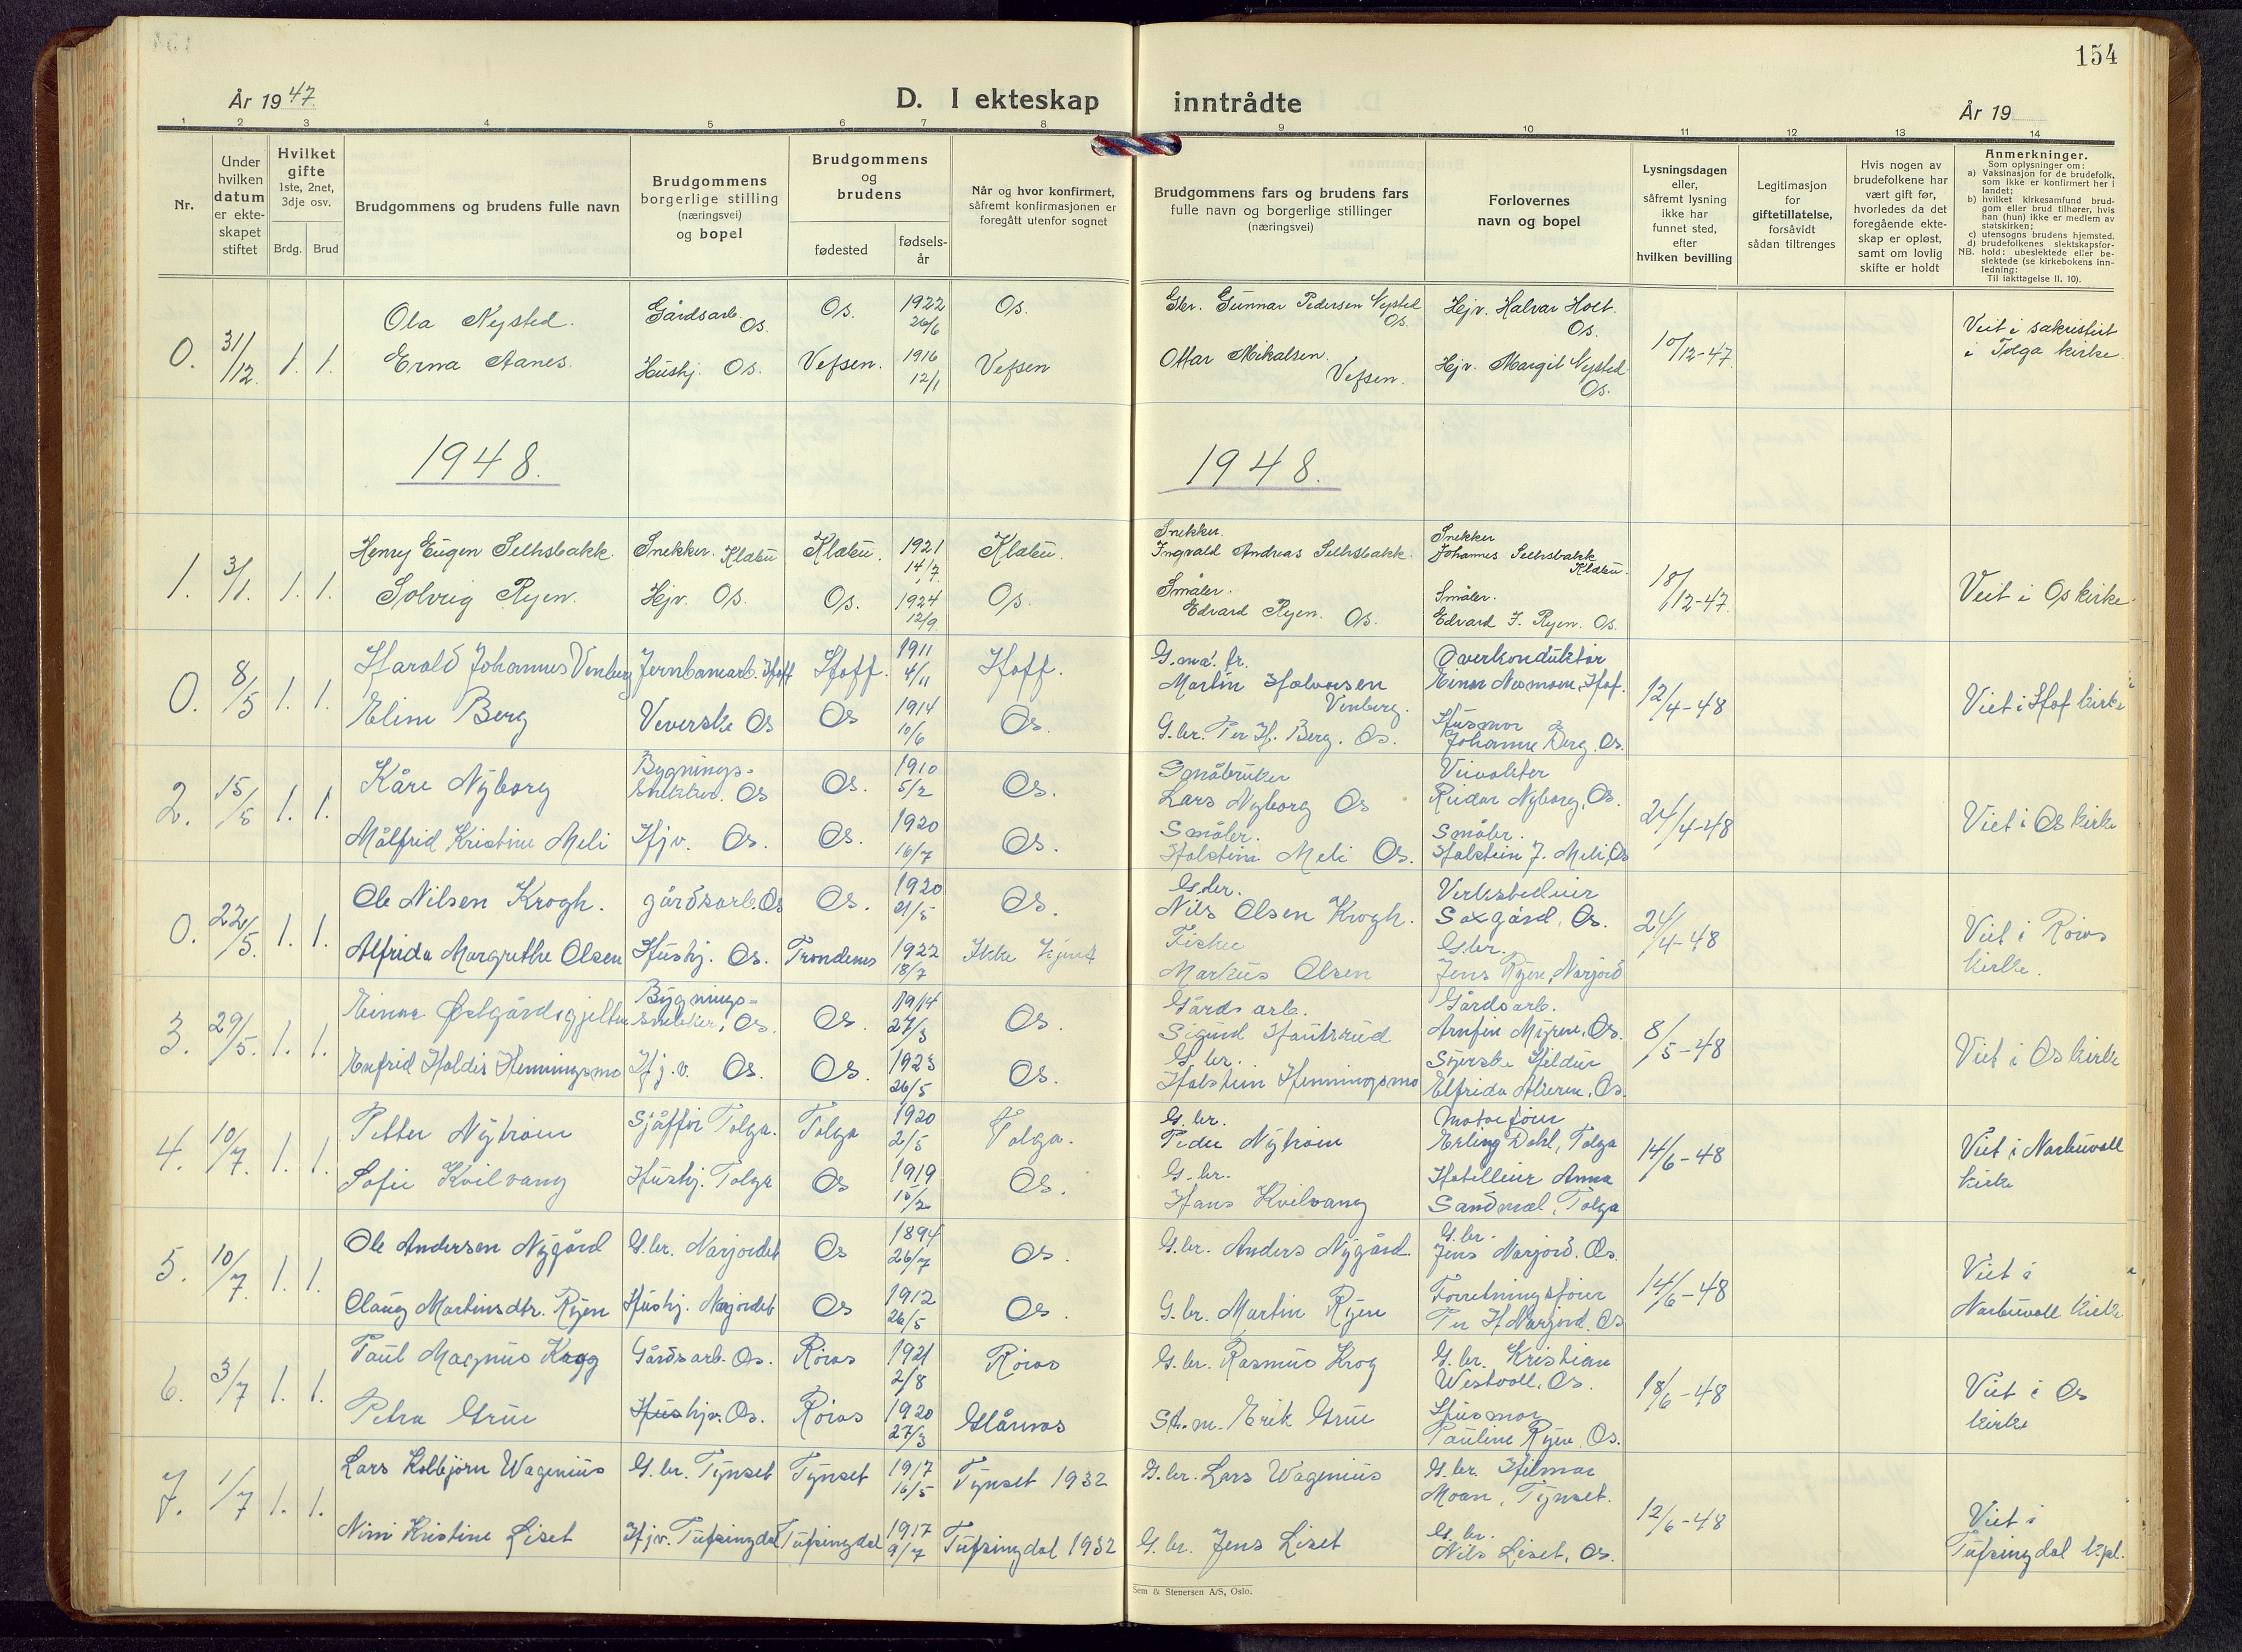 154
År 1947.
D. I ekteskap inntrådte
År 19
1 2 3 4 5 6 7 8 9 10 11 12 13 14
Nr.
Under hvilken datum er ekteskapet stiftet
Hvilket gifte 1ste, 2net, 3dje osv.
Brdg. Brud
Brudgommens og brudens fulle navn
Brudgommens borgerlige stilling (næringsvei) og bopel
Brudgommens og brudens
fødested
fødsels-år
Når og hvor konfirmert, såfremt konfirmasjonen er foregått utenfor sognet
Brudgommens fars og brudens fars fulle navn og borgerlige stillinger (næringsvei)
Forlovernes navn og bopel
Lysningsdagen eller, såfremt lysning ikke har funnet sted, efter hvilken bevilling
Legitimasjon for giftetillatelse, forsåvidt sådan tiltrenges
Hvis nogen av brudefolkene har vært gift før, hvorledes da det foregående ekteskap er opløst, samt om lovlig skifte er holdt
Anmerkninger.
Som oplysninger om:
a) Vaksinasjon for de brudefolk, som ikke er konfirmert her i landet;
b) hvilket kirkesamfund brudgom eller brud tilhører, hvis han (hun) ikke er medlem av statskirken;
c) utensogns brudens hjemsted.
d) brudefolkenes slektskapsforhold: ubeslektede eller beslektede (se kirkebokens innledning:
NB.
Til iakttagelse II. 10).
0. 31/12. 1. 1.
Ola Nysted. Gårdsarb. Os. Os. 1922 26/6 Os. Gbr. Gunnar Pedersen Nysted Os. Hjv. Halvar Holt. Os.
10/12-47.
Viet i sakristiet i Tolga kirke.
Erna Aanes. Hushj. Os. Vefsen. 1916 12/1 Vefsen Ottar Mikalsen. Vefsen. Hjv. Margit Nysted. Os.
1948. 1948.
1. 3/1. 1. 1.
Henry Eugen Selhsbakk. Snekker. Klæbu Klæbu. 1921 14/7. Klæbu. Snekker. Ingvald Andreas Selhsbakk. Snekker Johannes Selhsbakk Klæbu.
18/12-47.
Viet i Os kirke.
Solveig Ryen. Hjv. Os. Os. 1924 12/9. Os. Småbr. Edvard Ryen. Os. Småbr. Edvard J. Ryen. Os.
0. 8/5 1. 1.
Harald Johannes Vinberg Jernbanearb. Hoff Hoff. 1911 4/11 Hoff. Martin Halvorsen Vinberg. Overkonduktør
12/4-48
Viet i Hof kirke
Eline Berg Veverske Os Os 1914 10/6 Os. G.br. Per H. Berg. Os. Husmor Johanne Berg. Os.
2. 15/5 1. 1.
Kåre Nyborg Bygnings-snekker. Os Os. 1910 5/2 Os. Småbruker Lars Nyborg Os Reidar Nyborg, Os.
24/4-48
Viet i Os kirke
Målfrid Kristine Meli Hjv. Os. Os. 1920 16/7 Os. Småbr. Holstein Meli Os. Småbr. Holstein J. Meli, Os
0. 22/5. 1. 1.
Ole Nilsen Krogh. gårdsarb. Os Os. 1920 21/5 Os. G.br. Nils Olsen Krogh. Saxgård, Os.
24/4-48
Viet i Röros kirke.
Alfrida Margrethe Olsen Hushj. Os. Trondenes 1922 18/7 Ikke kjent Fisker Markus Olsen G.br. Jens Ryen, Narjord
3. 29/5. 1. 1.
Einar Østgårdsgjelten Bygnings-snekker, Os. Os. 1914 27/3 Os. Gårdsarb. Gårdsarb. Arnfin Myren, Os.
8/5-48
Viet i Os kirke
Enfrid Haldis Henningsmo Hj.v. Os. Os. 1923 26/5 Os. G.br. Holstein Henningsmo Syerske Hildur Elfrida Os.
4. 10/7. 1. 1.
Petter Nytrøen Sjåffør Tolga. Tolga 1920 2/5 Tolga. G.br. Peder Nytrøen Erling Dahl, Tolga
14/6-48
Viet i Narbuvoll kirke
Sofie Kvilvang Hushj. Tolga Os 1919 15/2 Os. G.br. Hans Kvilvang Anna Sandmæl, Tolga
5. 10/7. 1. 1.
Ole Andersen Nygård G.br. Narjordet Os 1894 26/7 Os. G.br. Anders Nygård. G.br. Jens Narjord. Os.
14/6-48
Viet i Narbuvoll kirke
Olaug Martinsdtr. Ryen Hushj. Narjordet Os 1912 26/5 Os. G.br. Martin Ryen Forretningsfører Per H. Narjord. Os
6. 3/7 1. 1.
Paul Magnus Krogg Gårdsarb. Os. Röros 1921 2/8 Röros G.br. Rasmus Krog G.br. Kristian Westvoll, Os.
18/6-48
Viet i Os kirke
Petra Grue Hushjv. Os. Röros 1920 27/3 Glåmos St.m. Erik Grue Husmor Pauline Ryen. Os.
7. 1/7 1. 1.
Lars Kolbjørn Wagenius G.br. Tynset Tynset 1917 16/5 Tynset 1932 G.br. Lars Wagenius G.br. Hilmar Moan, Tynset.
12/6-48
Viet i Tufsingdal kpl.
Nini Kristine Liset Hjv. Tufsingdal Tufsingdal 1917 9/7 Tufsingdal 1932 G.br. Jens Liset G.br. Nils Liset, Os.
Sem & Stenersen A/S, Oslo.